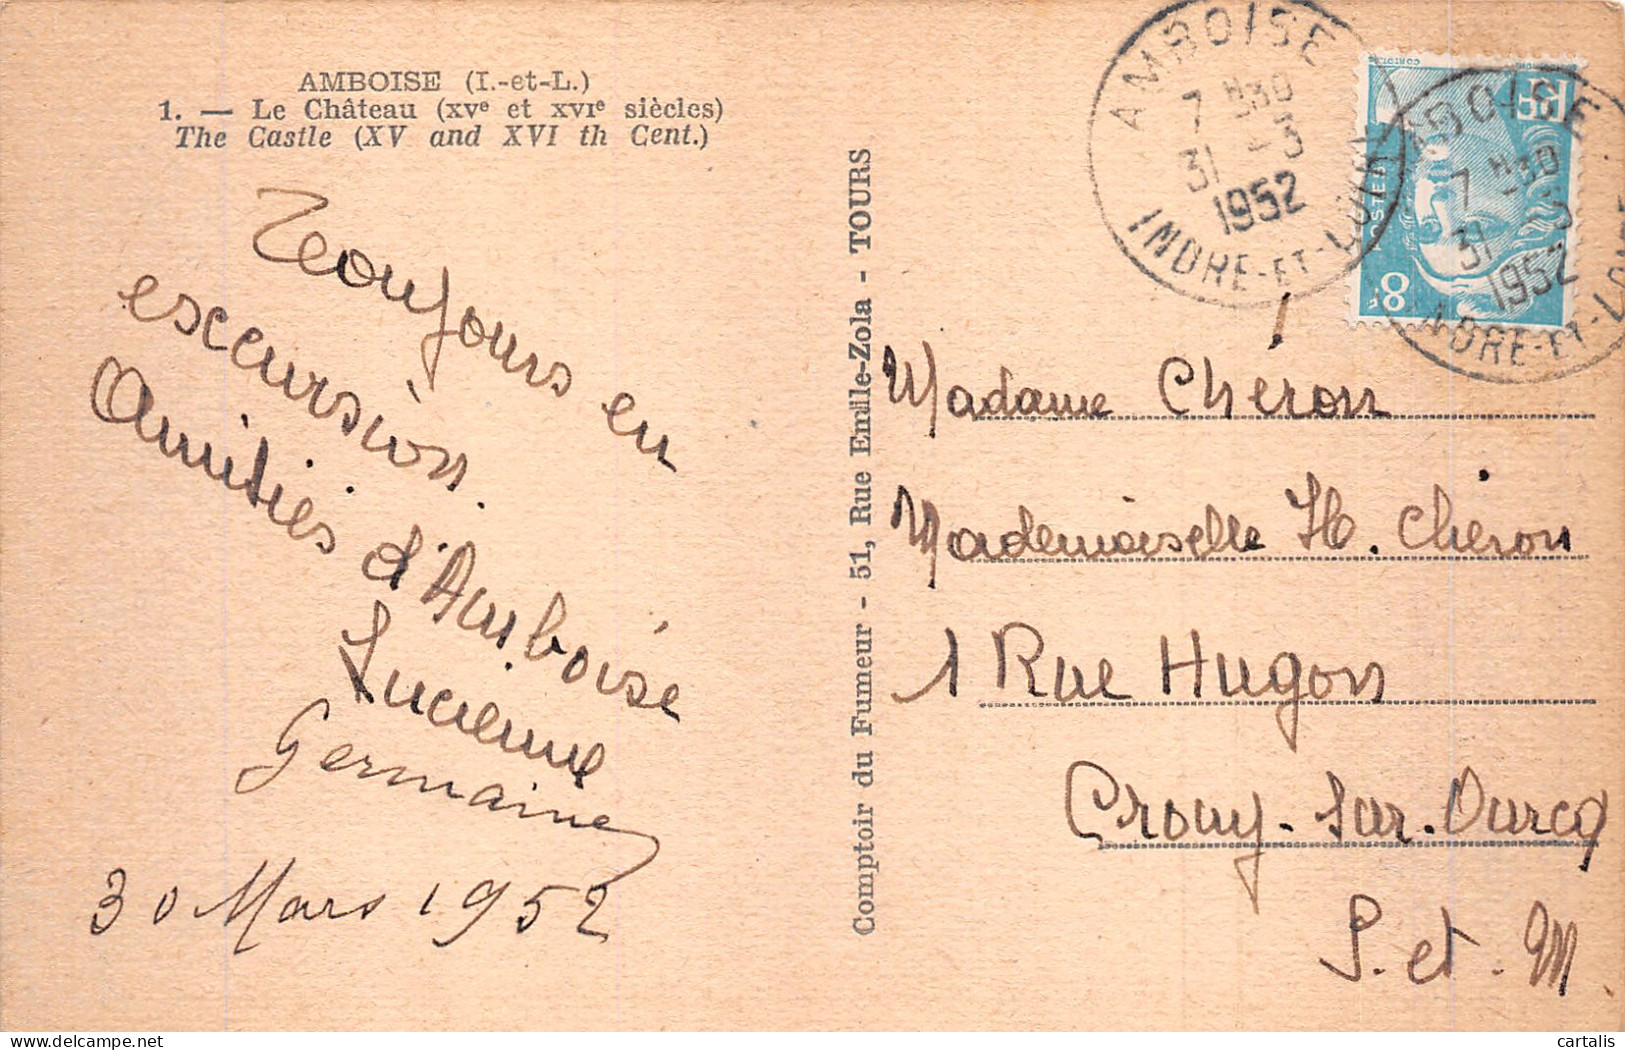 AMBOISE (I.-et-L.)
1. — Le Château (XVe et XVIe siècles)
The Castle (XV and XVI th Cent.)
Toujours en
excursion.
Amitiés d'Amboise
Lucienne
Germaine
30 Mars 1952
Comptoir du Fumeur - 51, Rue Emile-Zola - TOURS
AMBOISE
7 H30
31 -3
1952
INDRE-ET-LOIRE
RF
POSTES
8F
AMBOISE
7 H30
31 -3
1952
INDRE-ET-LOIRE
Madame Chéron
Mademoiselle H. Chéron
1 Rue Hugon
Crouy-sur-Ourcq
S. et M.
cartalis